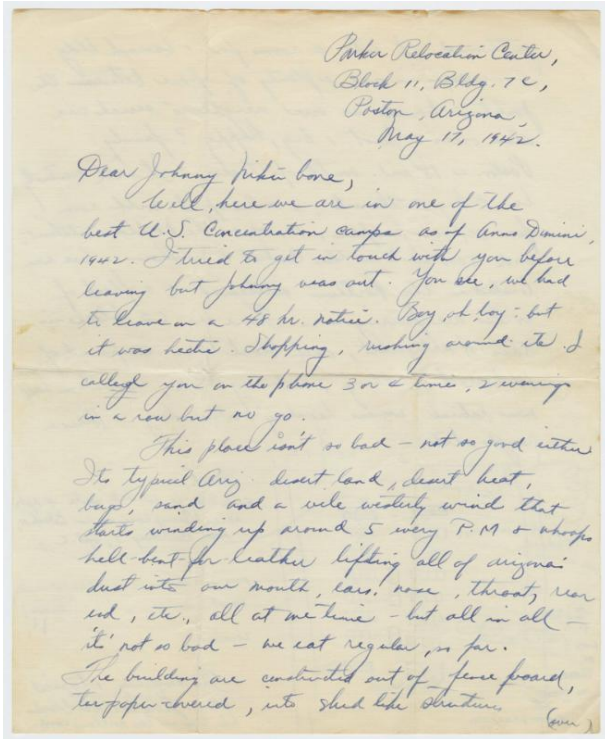 Parker Relocation Center,
Block 11, Bldg. 7C,
Poston, Arizona,
May 17, 1942.
Dear Johnny
Well, here we are in one of the
best U.S. Concentration camps as of Anno Domini,
1942. I tried to get in touch with you before
leaving but Johnny was out. You see, we had
to leave on a 48 hr. notice. Boy, oh, boy: but
it was hectic. Shopping, rushing around etc. I
called you on the phone 3 or 4 times, 2 evenings
in a row but no go.
This place isn't so bad — not so good either
Its typical Ariz. desert land, desert heat,
bugs, sand and a vile westerly wind that
starts winding up around 5 every P.M &
hell-bent for leather lifting all of arizona's
dust into our mouth, ears, nose, throat, rear
end, etc., all at one time — but all in all —
it's not so bad — we eat regular, so far.
The building are constructed out of fence board,
tar paper covered, into shed like structures
(over)